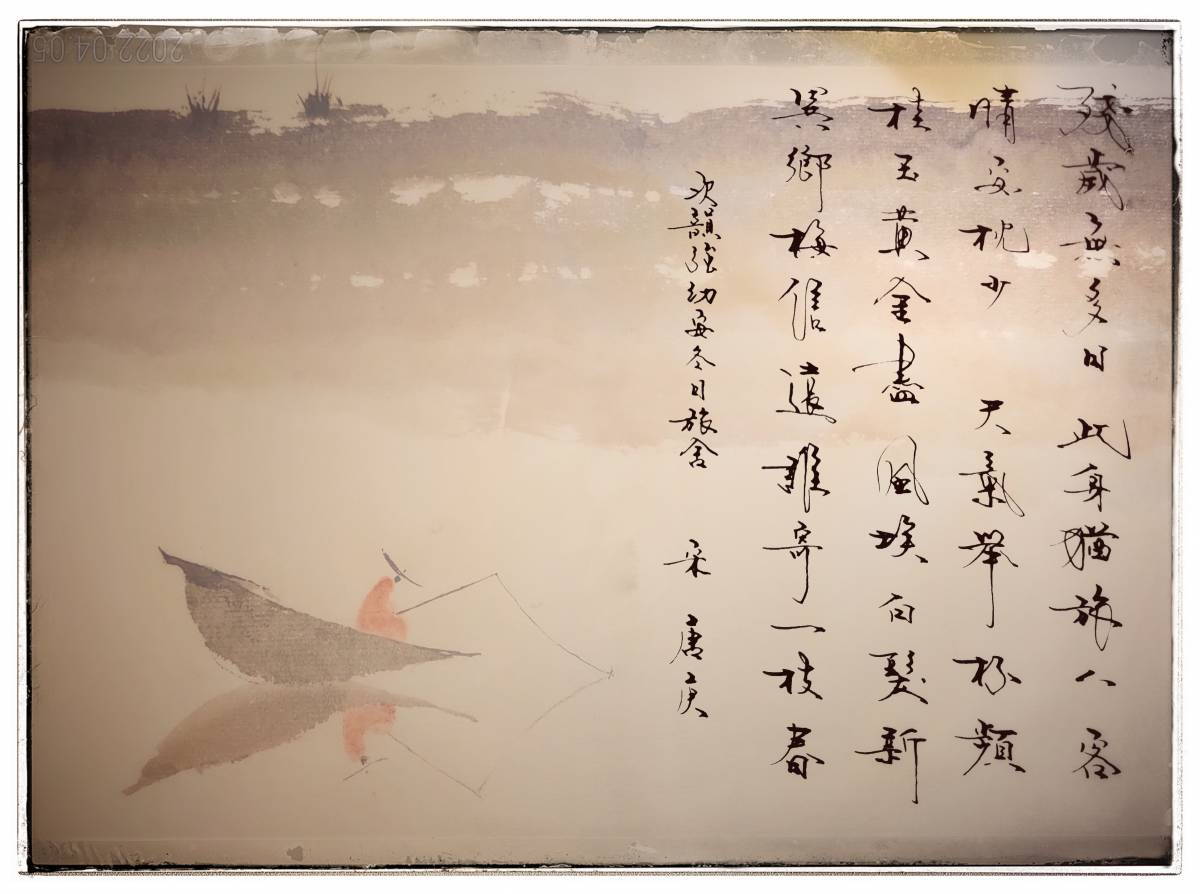 殘歲無多日 此身猶旅人 客
晴安枕少 天氣舉杯頻
桂玉黃金盡 風埃白髮新
異鄉梅信遠 誰寄一枝春
次韻強幼安冬日旅舍 宋 唐庚
2022.04.05